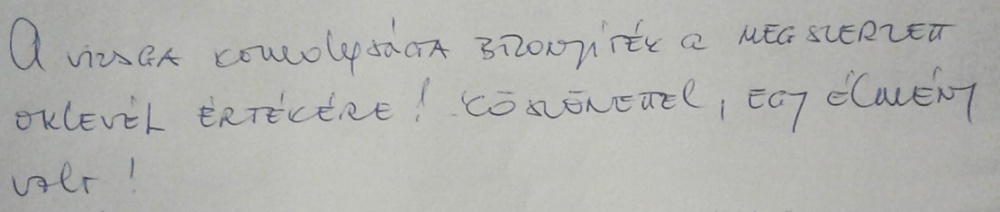 A vizsga komolysága bizonyíték a megszerzett
oklevél értékére! Köszönettel, egy élmény
volt!